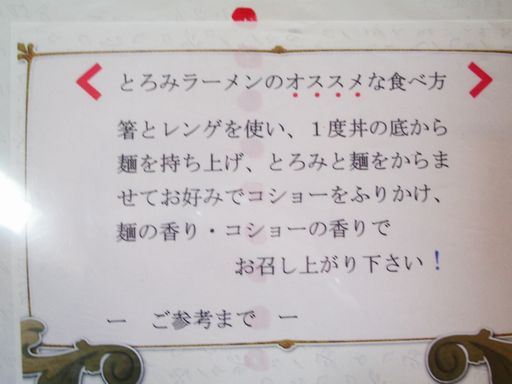 < とろみラーメンのオススメな食べ方 >
箸とレンゲを使い、１度丼の底から
麺を持ち上げ、とろみと麺をからま
せてお好みでコショーをふりかけ、
麺の香り・コショーの香りで
お召し上がり下さい！
ー　ご参考まで　ー